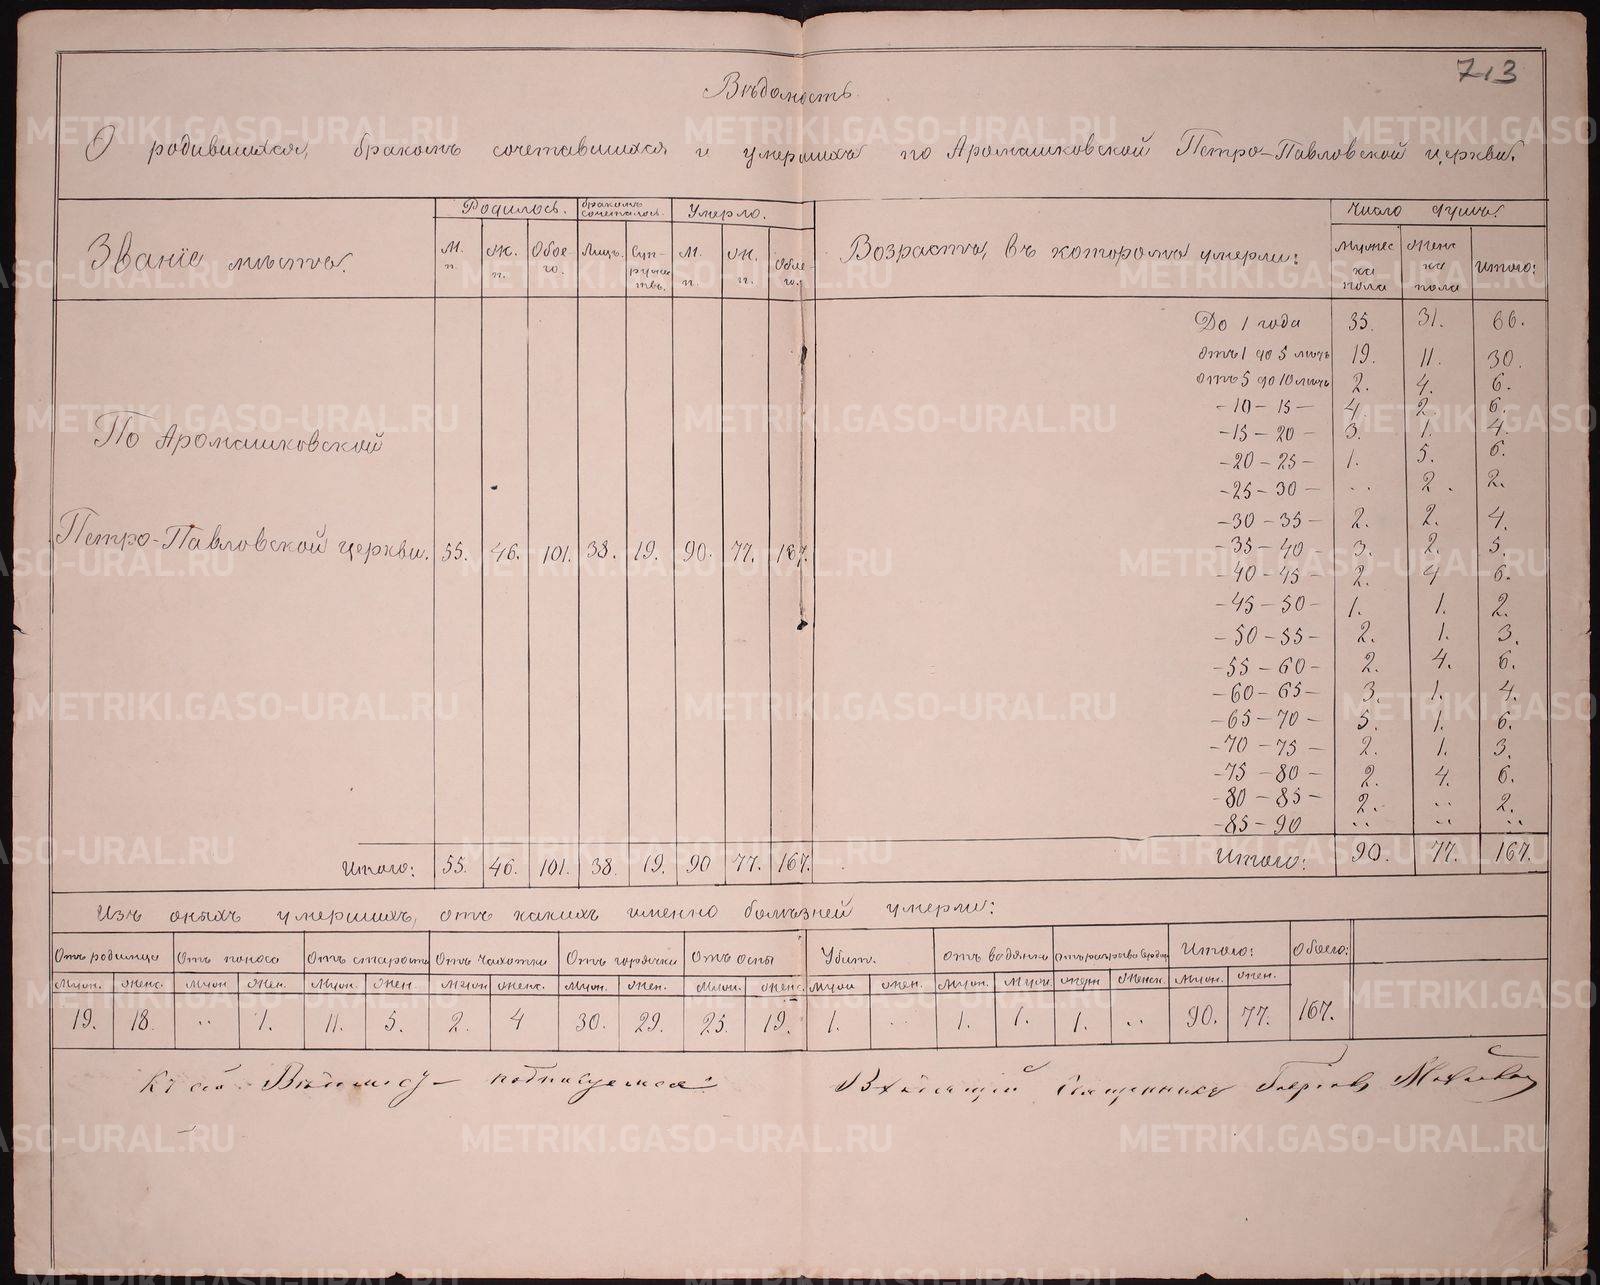 713
Вѣдомость
О родившихся, бракомъ сочетавшихся и умершихъ по Аромашковской Петро-Павловской церкви.
Званіе мѣста.
Родилось. | бракомъ сочеталось. | Умерло.
М. п. | Ж. п. | Обоего. | Лицъ. | Супружествъ. | М. п. | Ж. п. | Обоего.
По Аромашковской
Петро-Павловской церкви. 55. 46. 101. 38. 19. 90. 77. 167.
Итого: 55. 46. 101. 38. 19. 90 77. 167.
Возраста, въ которомъ умерли:
Число душъ:
Мужеска пола | Женска пола | Итого:
До 1 года 35. 31. 66.
отъ 1 до 5 лѣтъ 19. 11. 30.
отъ 5 до 10 лѣтъ 2. 4. 6.
-10-15- 4. 2. 6.
-15-20- 3. 1. 4.
-20-25- 1. 5. 6.
-25-30- .. 2. 2.
-30-35- 2. 2. 4.
-35-40- 3. 2. 5.
-40-45- 2. 4 6.
-45-50- 1. 1. 2.
-50-55- 2. 1. 3.
-55-60- 2. 4. 6.
-60-65- 3. 1. 4.
-65-70- 5. 1. 6.
-70-75- 2. 1. 3.
-75-80- 2. 4. 6.
-80-85- 2. .. 2.
-85-90 .. .. ..
Итого: 90. 77. 167.
Изъ оныхъ умершихъ, отъ какихъ именно болѣзней умерли:
Отъ родимца | Отъ поноса | Отъ старости | Отъ чахотки | Отъ горячки | Отъ оспы | Убит. | отъ водянки | отъ разрыва сердца | Итого: | Обоего:
Муж. | Женс. | Муж | Жен. | Муж. | Жен. | Муж | Женс. | Муж. | Жен. | Муж. | Женс. | Муж | Жен. | Муж. | Муж. | Муж | Женск. | Муж. | Жен.
19. 18. .. 1. 11. 5. 2. 4 30. 29. 25. 19. 1. .. 1. 1. 1. .. 90. 77. 167.
Къ сей Вѣдомости подписуемся:
Священникъ
METRIKI.GASO-URAL.RU